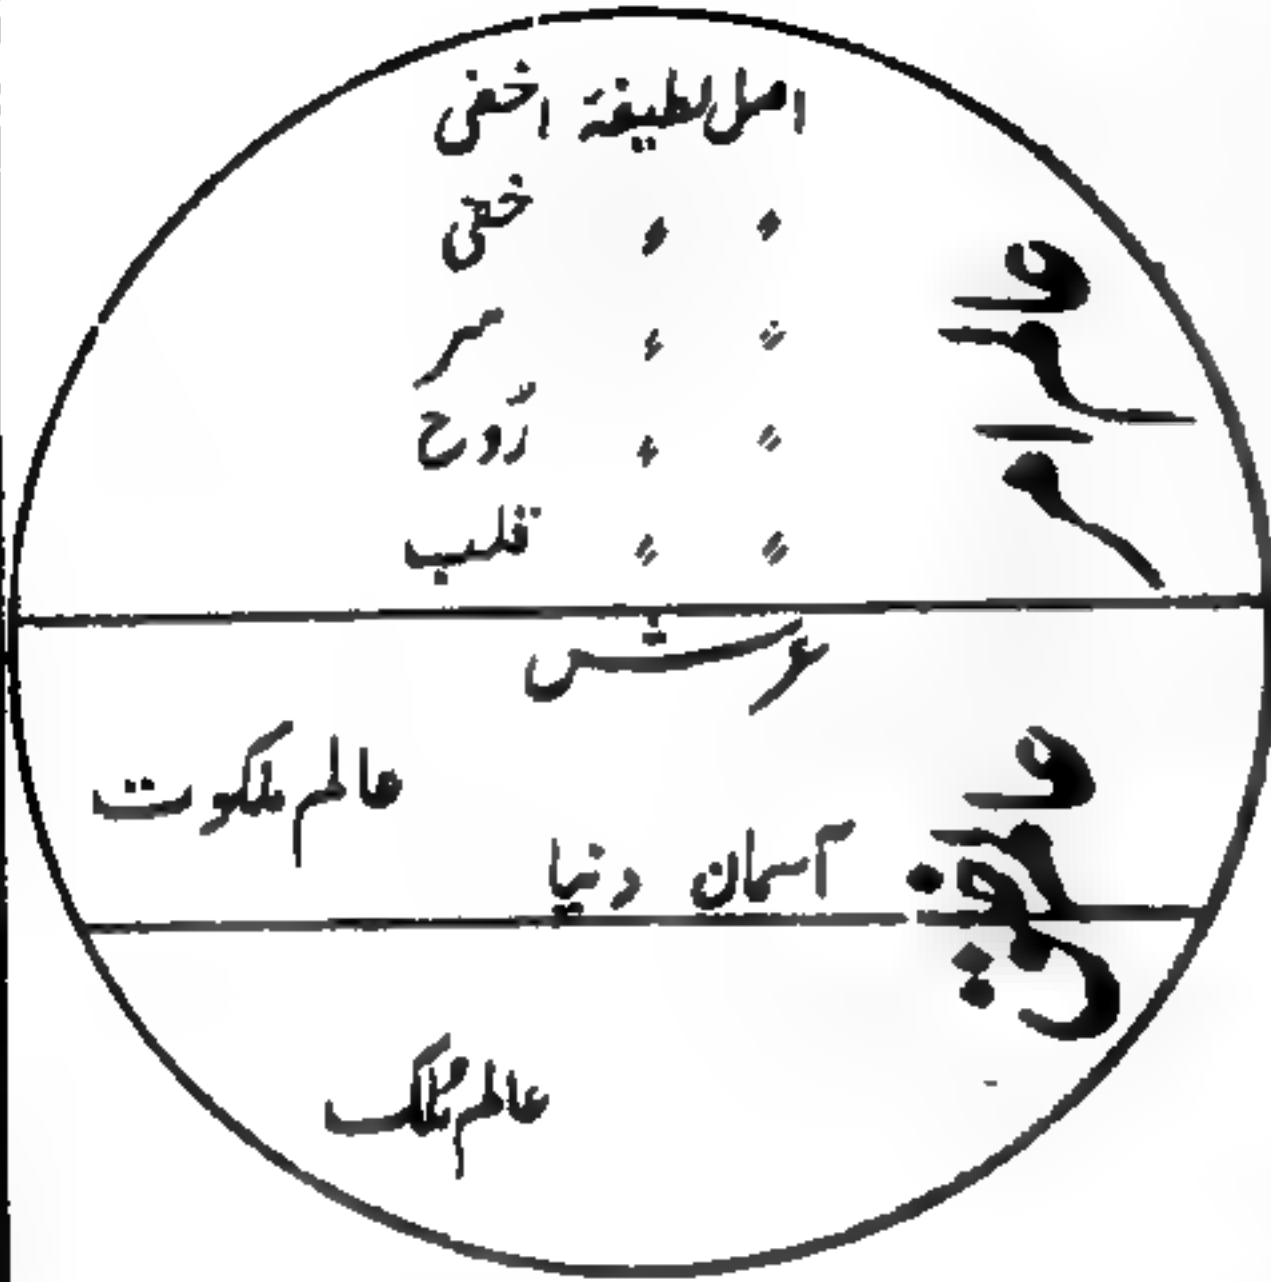 اصل لطیفۂ اخفیٰ
〃 〃 خفی
〃 〃 سر
〃 〃 رُوح
〃 〃 قلب
عالم امر
عرش
عالم ملکوت
آسمان دنیا
عالم خلق
عالم مُلک